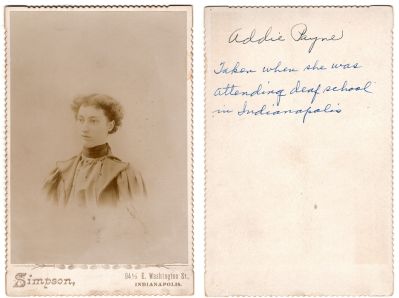 Simpson,
94½ E. Washington St.
INDIANAPOLIS.
Addie Payne
Taken when she was
attending deaf school
in Indianapolis